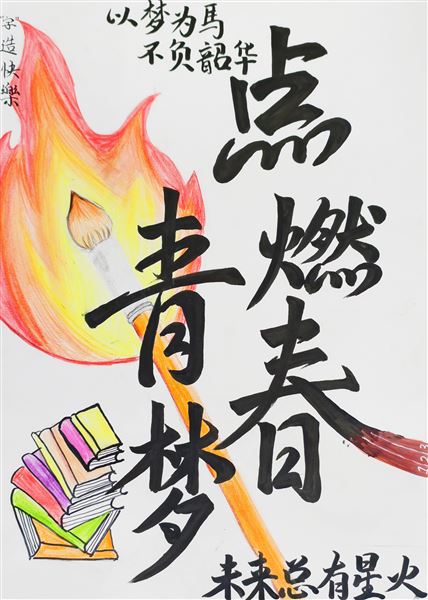 "字"造快樂
以梦为馬
不负韶华
点燃青春梦
未来总有星火